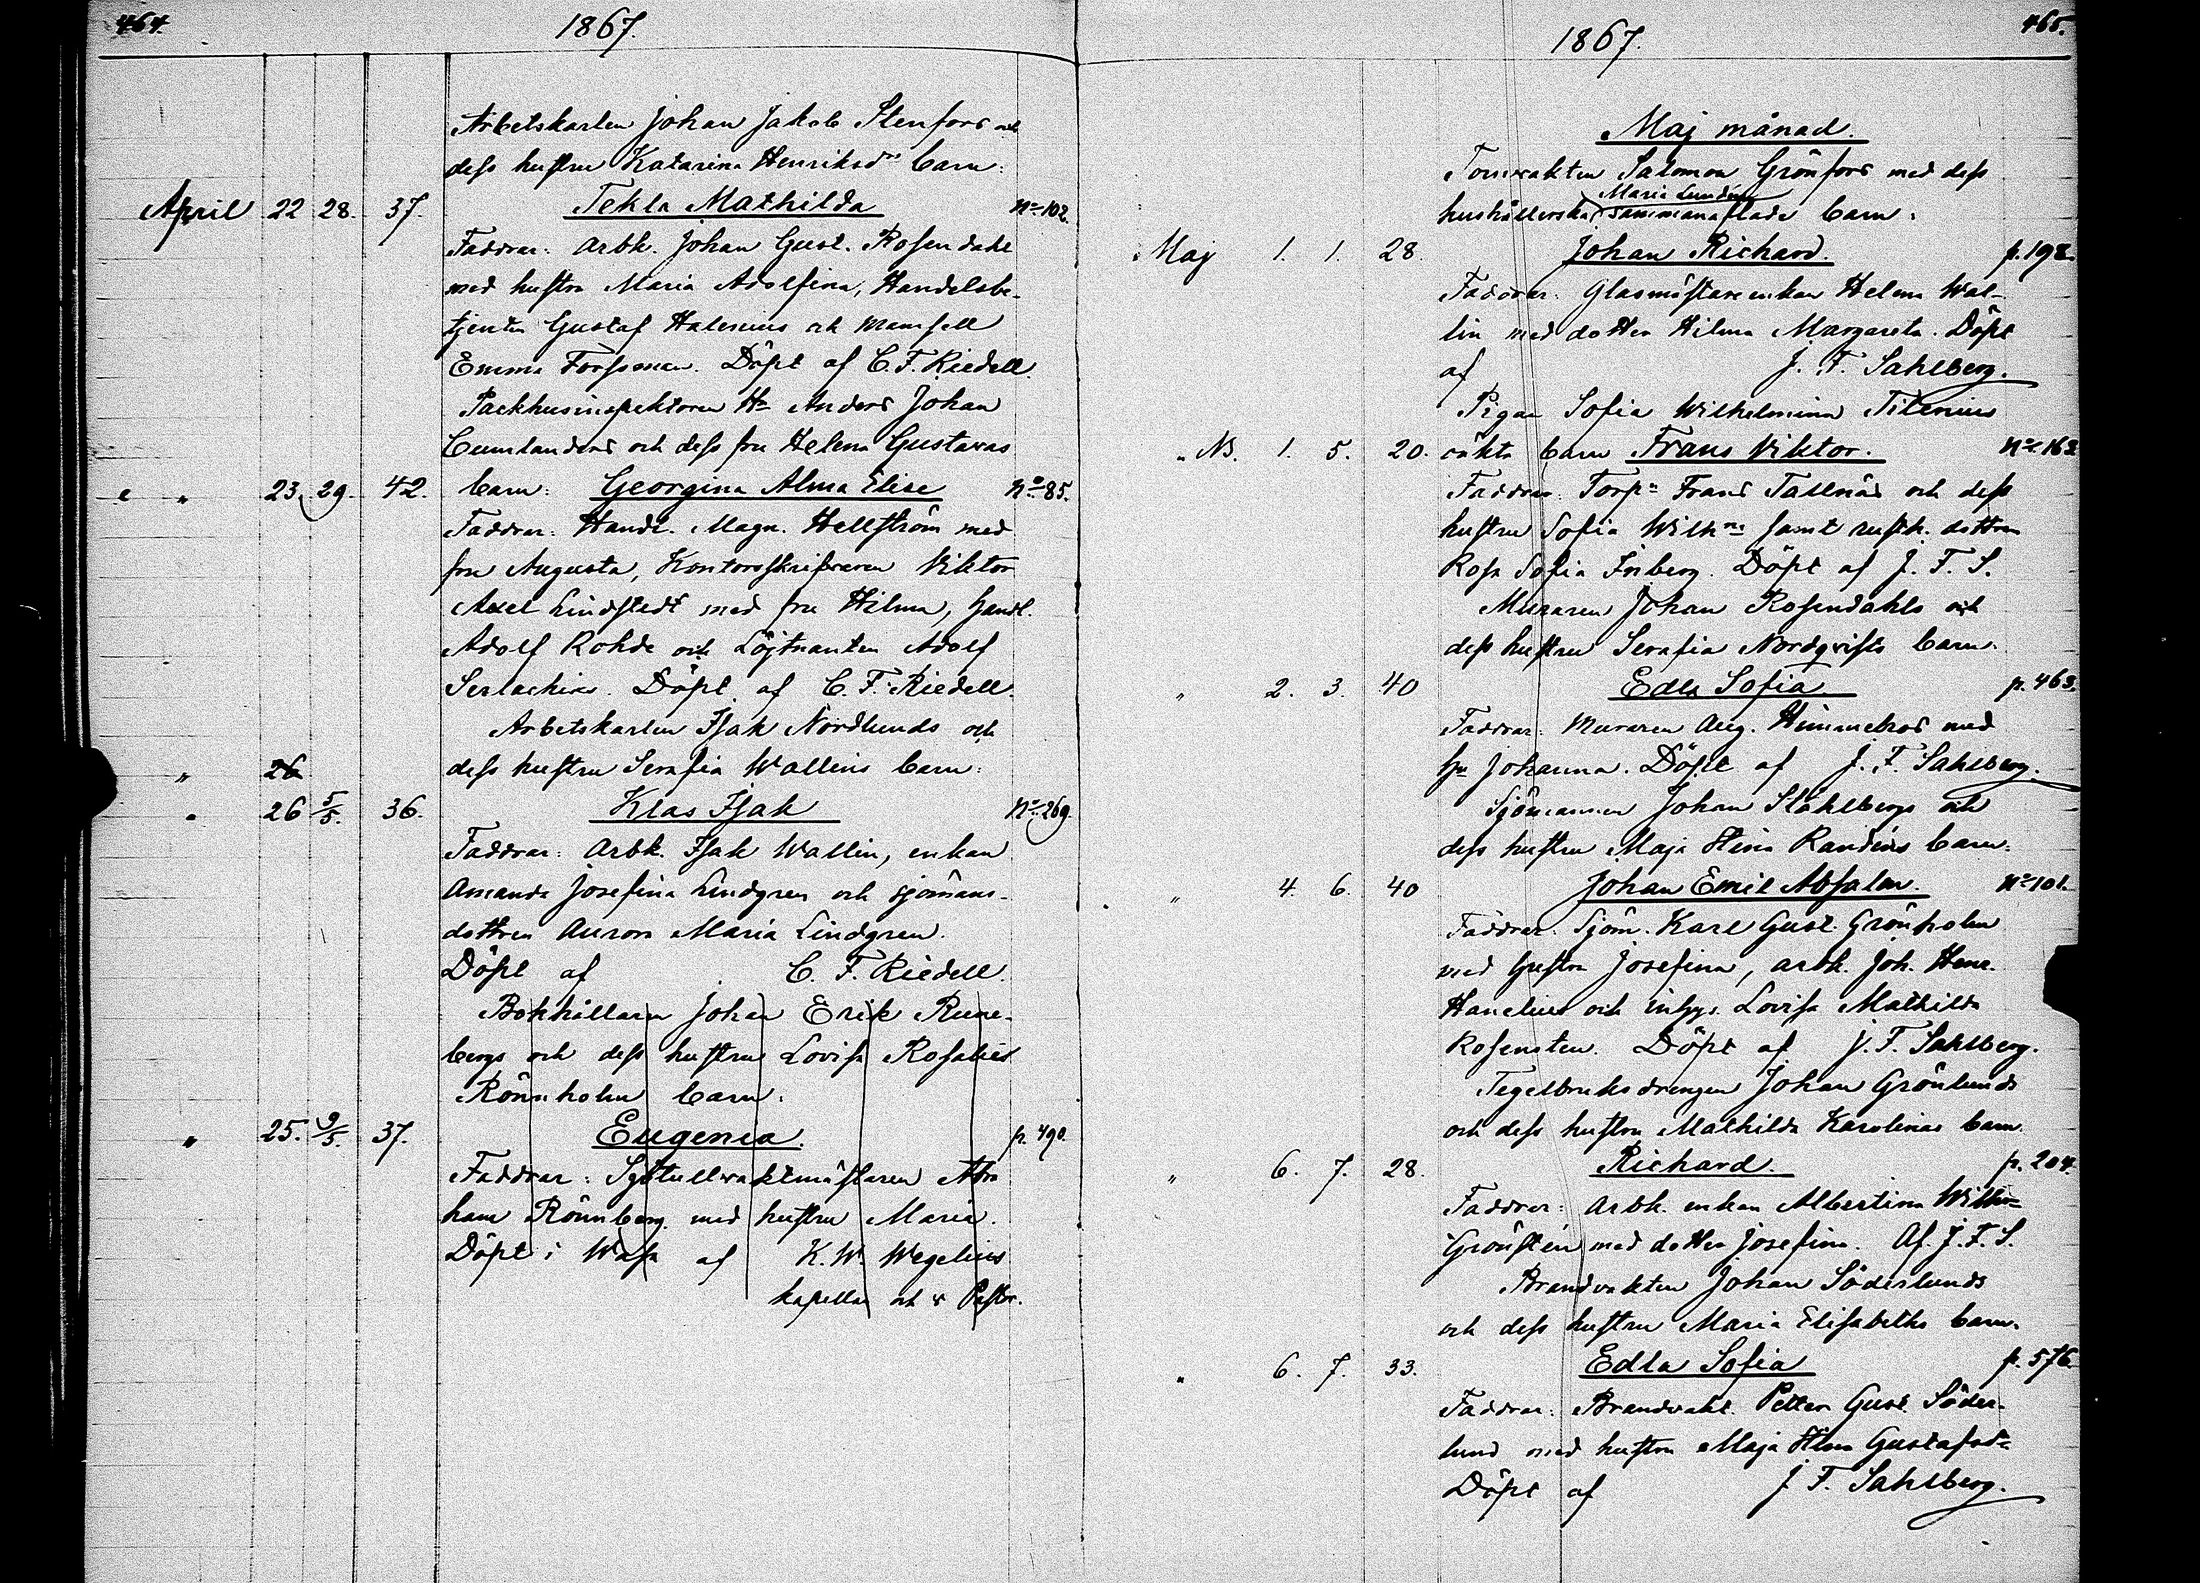 464.
1867.
Arbetskarlen Johan Jakob Stenfors och
dess hustru Katarina Henriksdrs barn:
April 22 28. 37. Tekla Mathilda No 102.
Faddrar: Arbk. Johan Gust. Rosendahl
med hustru Maria Adolfina, Handelsbe-
tjenten Gustaf Halenius och Mamsell
Emma Forssman. Döpt af C. F. Riedell.
Packhusinspektoren Hr Anders Johan
och dess fru Helena Gustavas
" 23. 29. 42. barn: Georgina Alma Elise No 85.
Faddrar: Handl. Magn. Hellström med
fru Augusta, Kontorsskrifvaren Viktor
Axel Lindstedt med fru Hilma, Handl.
Adolf Rohde och Löjtnanten Adolf
Serlachius. Döpt af C. F. Riedell.
Arbetskarlen Isak Nordlunds och
" 26 dess hustru Serafia Wallins barn:
" 26 5/5. 36. Klas Isak No 269.
Faddrar: Arbk. Isak Wallin, enkan
Amanda Josefina Lindgren och sjömans-
dottren Aurora Maria Lindgren.
Döpt af C. F. Riedell.
Bokhållaren Johan Erik Rune-
bergs och dess hustru Lovisa Rosalies
Rönnholm barn:
" 25. 9/5. 37. Eugenia. p. 490.
Faddrar: Sjötullvaktmästaren Abra
ham Rönnberg med hustru Maria.
Döpt i Wasa af K. W. Wegelius
kapellan och v Pastor.
465.
1867.
Maj månad.
Tornvakten Salomon Grönfors med dess
Maria Lundin
hushållerska sammanaflade barn:
Maj 1. 1. 28. Johan Richard. p. 198.
Faddrar: Glasmästareenkan Helena Wal-
lin med dotter Hilma Margareta. Döpt
af J. F. Sahlberg.
Pigan Sofia Wilhelmina Titenius
" NB. 1. 5. 20. oäkta barn Frans Viktor. No 163
Faddrar: Torpn Frans Tallnäs och dess
hustru Sofia Wilhna samt rusth. dottren
Rosa Sofia Friberg. Döpt af J. F. S.
Muraren Johan Rosendahls och
dess hustru Serafia Nordqvists barn.
" 2. 3. 40 Edla Sofia p. 463.
Faddrar: Muraren Aug. Himmelros med
hu Johanna. Döpt af J. F. Sahlberg.
Sjömannen Johan Ståhlbergs och
dess hustru Maja Stina Randéns barn:
" 4. 6. 40 Johan Emil Absalon. No 101.
Faddrar: Sjöm. Karl Gust. Grönholm
med hustru Josefina, arbk. Joh. Henr.
Hanelius och inhys. Lovisa Mathilda
Rosensten. Döpt af J. F. Sahlberg.
Tegelbruksdrengen Johan Grönlunds
och dess hustru Mathilda Karolinas barn
" 6. 7. 28. Richard. p. 204.
Faddrar: Arbk. enkan Albertina Wilhna
Grönstén med dotter Josefina. Af J. F. S.
Brandvakten Johan Söderlunds
och dess hustru Maria Elisabeths barn.
" 6. 7. 33. Edla Sofia p. 576
Faddrar: Brandvakt. Petter Gust. Söder-
lund med hustru Maja Stina Gustafsdr
Döpt af J. F. Sahlberg.